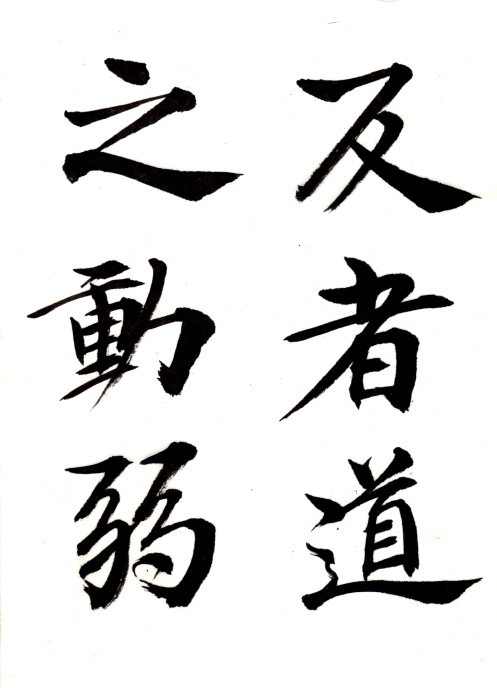 反者道
之動弱